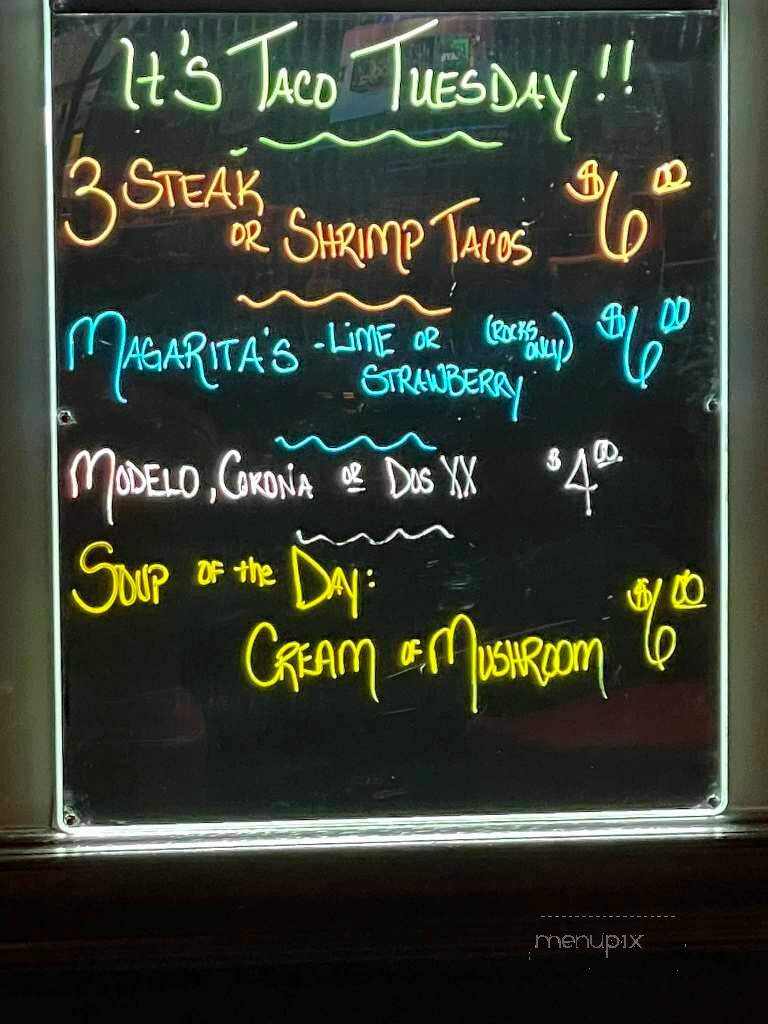 It's Taco Tuesday!!
3 Steak $6.00
or Shrimp Tacos
Magarita's - Lime or (Rocks Only) $6.00
Strawberry
Modelo, Corona or Dos XX $4.00
Soup of the Day:
Cream of Mushroom $6.00
menupix